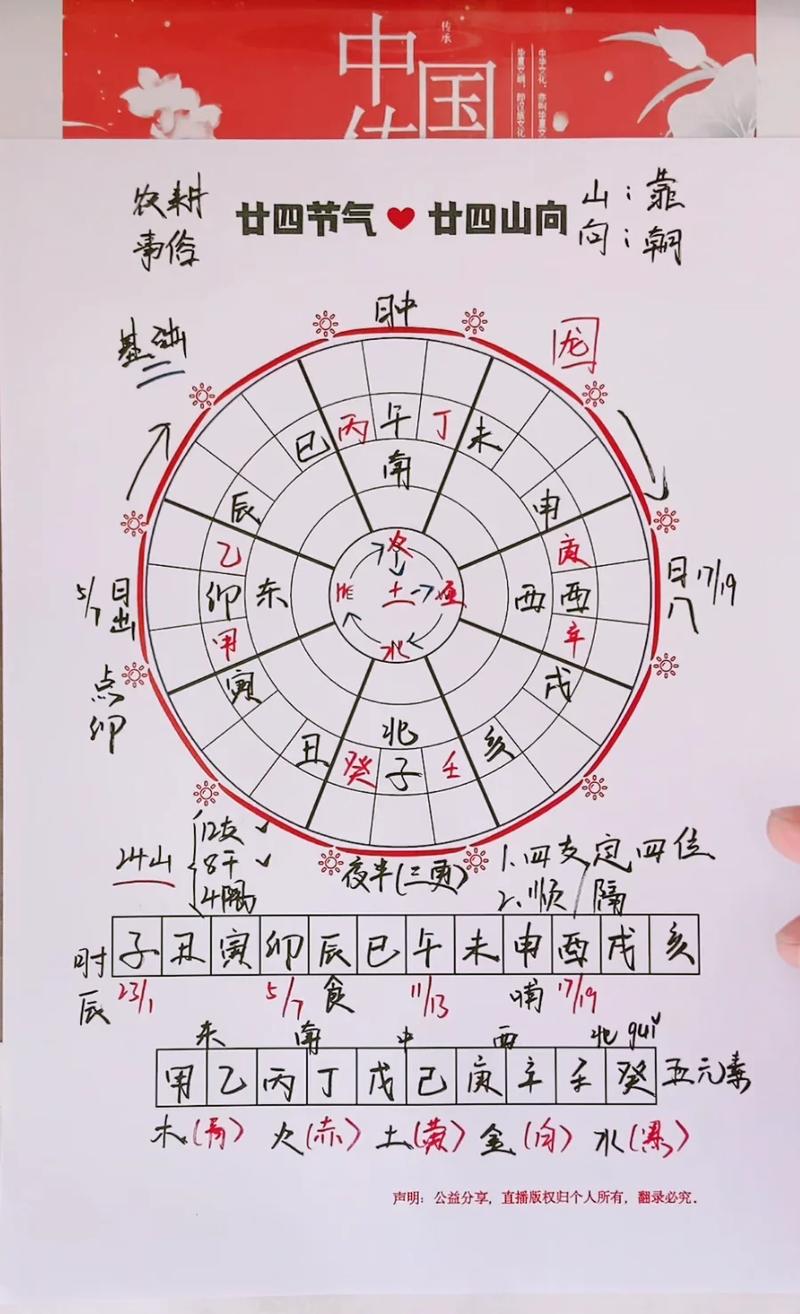 中国
传
传承
农耕
事俗
廿四节气 廿四山向
山：靠
向：朝
基础
日中
龙
巳 丙 午 丁 未
南
辰 申
乙 庚
卯 东 西 酉
甲 辛
寅 戌
丑 癸 子 壬 亥
北
火
土
水
5/7 日出
日入 17/19
点卯
24山
12支
8干
4隅
夜半(三更)
1.四支定四位
2.顺隔
时辰
子 丑 寅 卯 辰 巳 午 未 申 酉 戌 亥
23/1 5/7 食 11/13 哺 17/19
东 南 中 西 北 guǐ
甲 乙 丙 丁 戊 己 庚 辛 壬 癸 五元素
木(青) 火(赤) 土(黄) 金(白) 水(黑)
声明：公益分享，直播版权归个人所有，翻录必究。